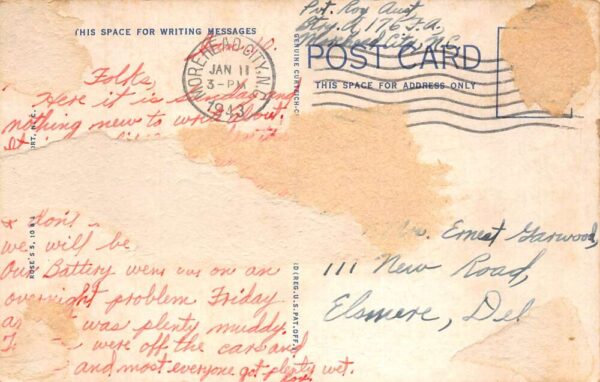 THIS SPACE FOR WRITING MESSAGES
Folks,
Here it is Sunday and
nothing new to write about.
& don't
we will be
Our Battery went out on an
overnight problem Friday
was plenty muddy.
were off the cars and
and most everyone got plenty wet.
Roy
MOREHEAD CITY, N.C.
JAN 11
3-PM
1943
GENUINE CURTEICH-C
Pvt. Roy Aust
Btry. A, 176 F.A.
Morehead City, N.C.
POST CARD
THIS SPACE FOR ADDRESS ONLY
Ernest Garwood,
111 New Road,
Elsmere, Del
ROSE'S 5, 10 &
(REG. U.S. PAT. OFF.